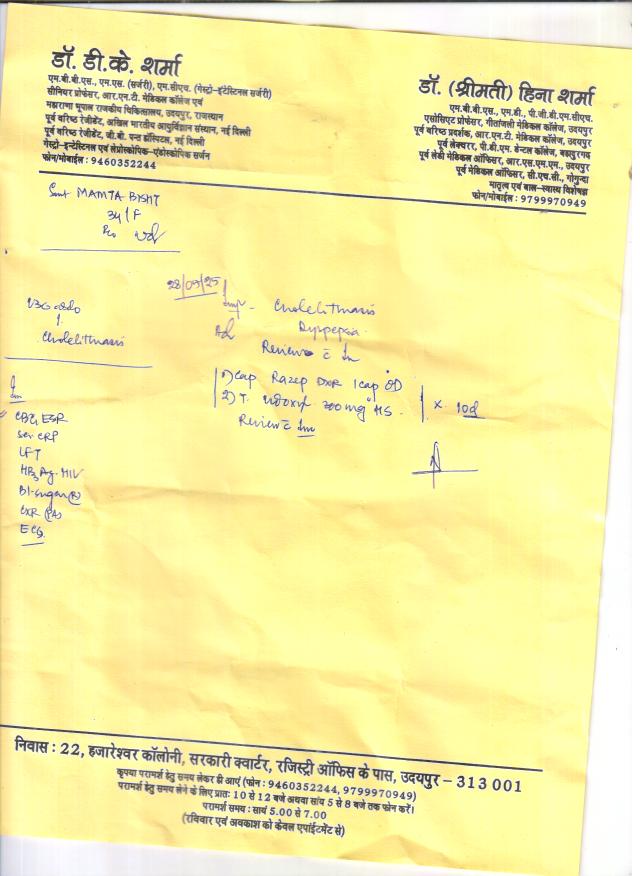 डॉ. डी.के. शर्मा
एम.बी.बी.एस., एम.एस. (सर्जरी), एम.सीएच. (गेस्ट्रो-इंटेस्टिनल सर्जरी)
सीनियर प्रोफेसर, आर.एन.टी. मेडिकल कॉलेज एवं
महाराणा भूपाल राजकीय चिकित्सालय, उदयपुर, राजस्थान
पूर्व वरिष्ठ रेजीडेंट, अखिल भारतीय आयुर्विज्ञान संस्थान, नई दिल्ली
पूर्व वरिष्ठ रेजीडेंट, जी.बी. पन्त हॉस्पिटल, नई दिल्ली
गेस्ट्रो-इन्टेस्टिनल एवं लेप्रोस्कोपिक-एंडोस्कोपिक सर्जन
फोन/मोबाईल : 9460352244
डॉ. (श्रीमती) हिना शर्मा
एम.बी.बी.एस., एम.डी., पी.जी.डी.एम.सीएच.
एसोसिएट प्रोफेसर, गीतांजली मेडिकल कॉलेज, उदयपुर
पूर्व वरिष्ठ प्रदर्शक, आर.एन.टी. मेडिकल कॉलेज, उदयपुर
पूर्व लेक्चरर, पी.डी.एम. डेन्टल कॉलेज, बहादुरगढ़
पूर्व लेडी मेडिकल ऑफिसर, आर.एस.एम.एम., उदयपुर
पूर्व मेडिकल ऑफिसर, सी.एच.सी., गोगुन्दा
मातृत्व एवं बाल-स्वास्थ्य विशेषज्ञ
फोन/मोबाईल : 9799970949
Smt MAMTA BISHT
34/F
28/09/25
Imp - Cholelithiasis
Dyspepsia
Adv
Review c Inv
USG abdo
Cholelithiasis
1) Cap Razep DXR 1cap OD
2) T. 300mg HS. x 10d
Review c Inv
Inv
CBC, ESR
Ser CRP
LFT
HBsAg, HIV
Bl-sugar (R)
CXR (PA)
ECG
निवास : 22, हजारेश्वर कॉलोनी, सरकारी क्वार्टर, रजिस्ट्री ऑफिस के पास, उदयपुर – 313 001
कृपया परामर्श हेतु समय लेकर ही आएं (फोन : 9460352244, 9799970949)
परामर्श हेतु समय लेने के लिए प्रातः 10 से 12 बजे अथवा सांय 5 से 8 बजे तक फोन करें।
परामर्श समय : सायं 5.00 से 7.00
(रविवार एवं अवकाश को केवल एपांईटमेंट से)